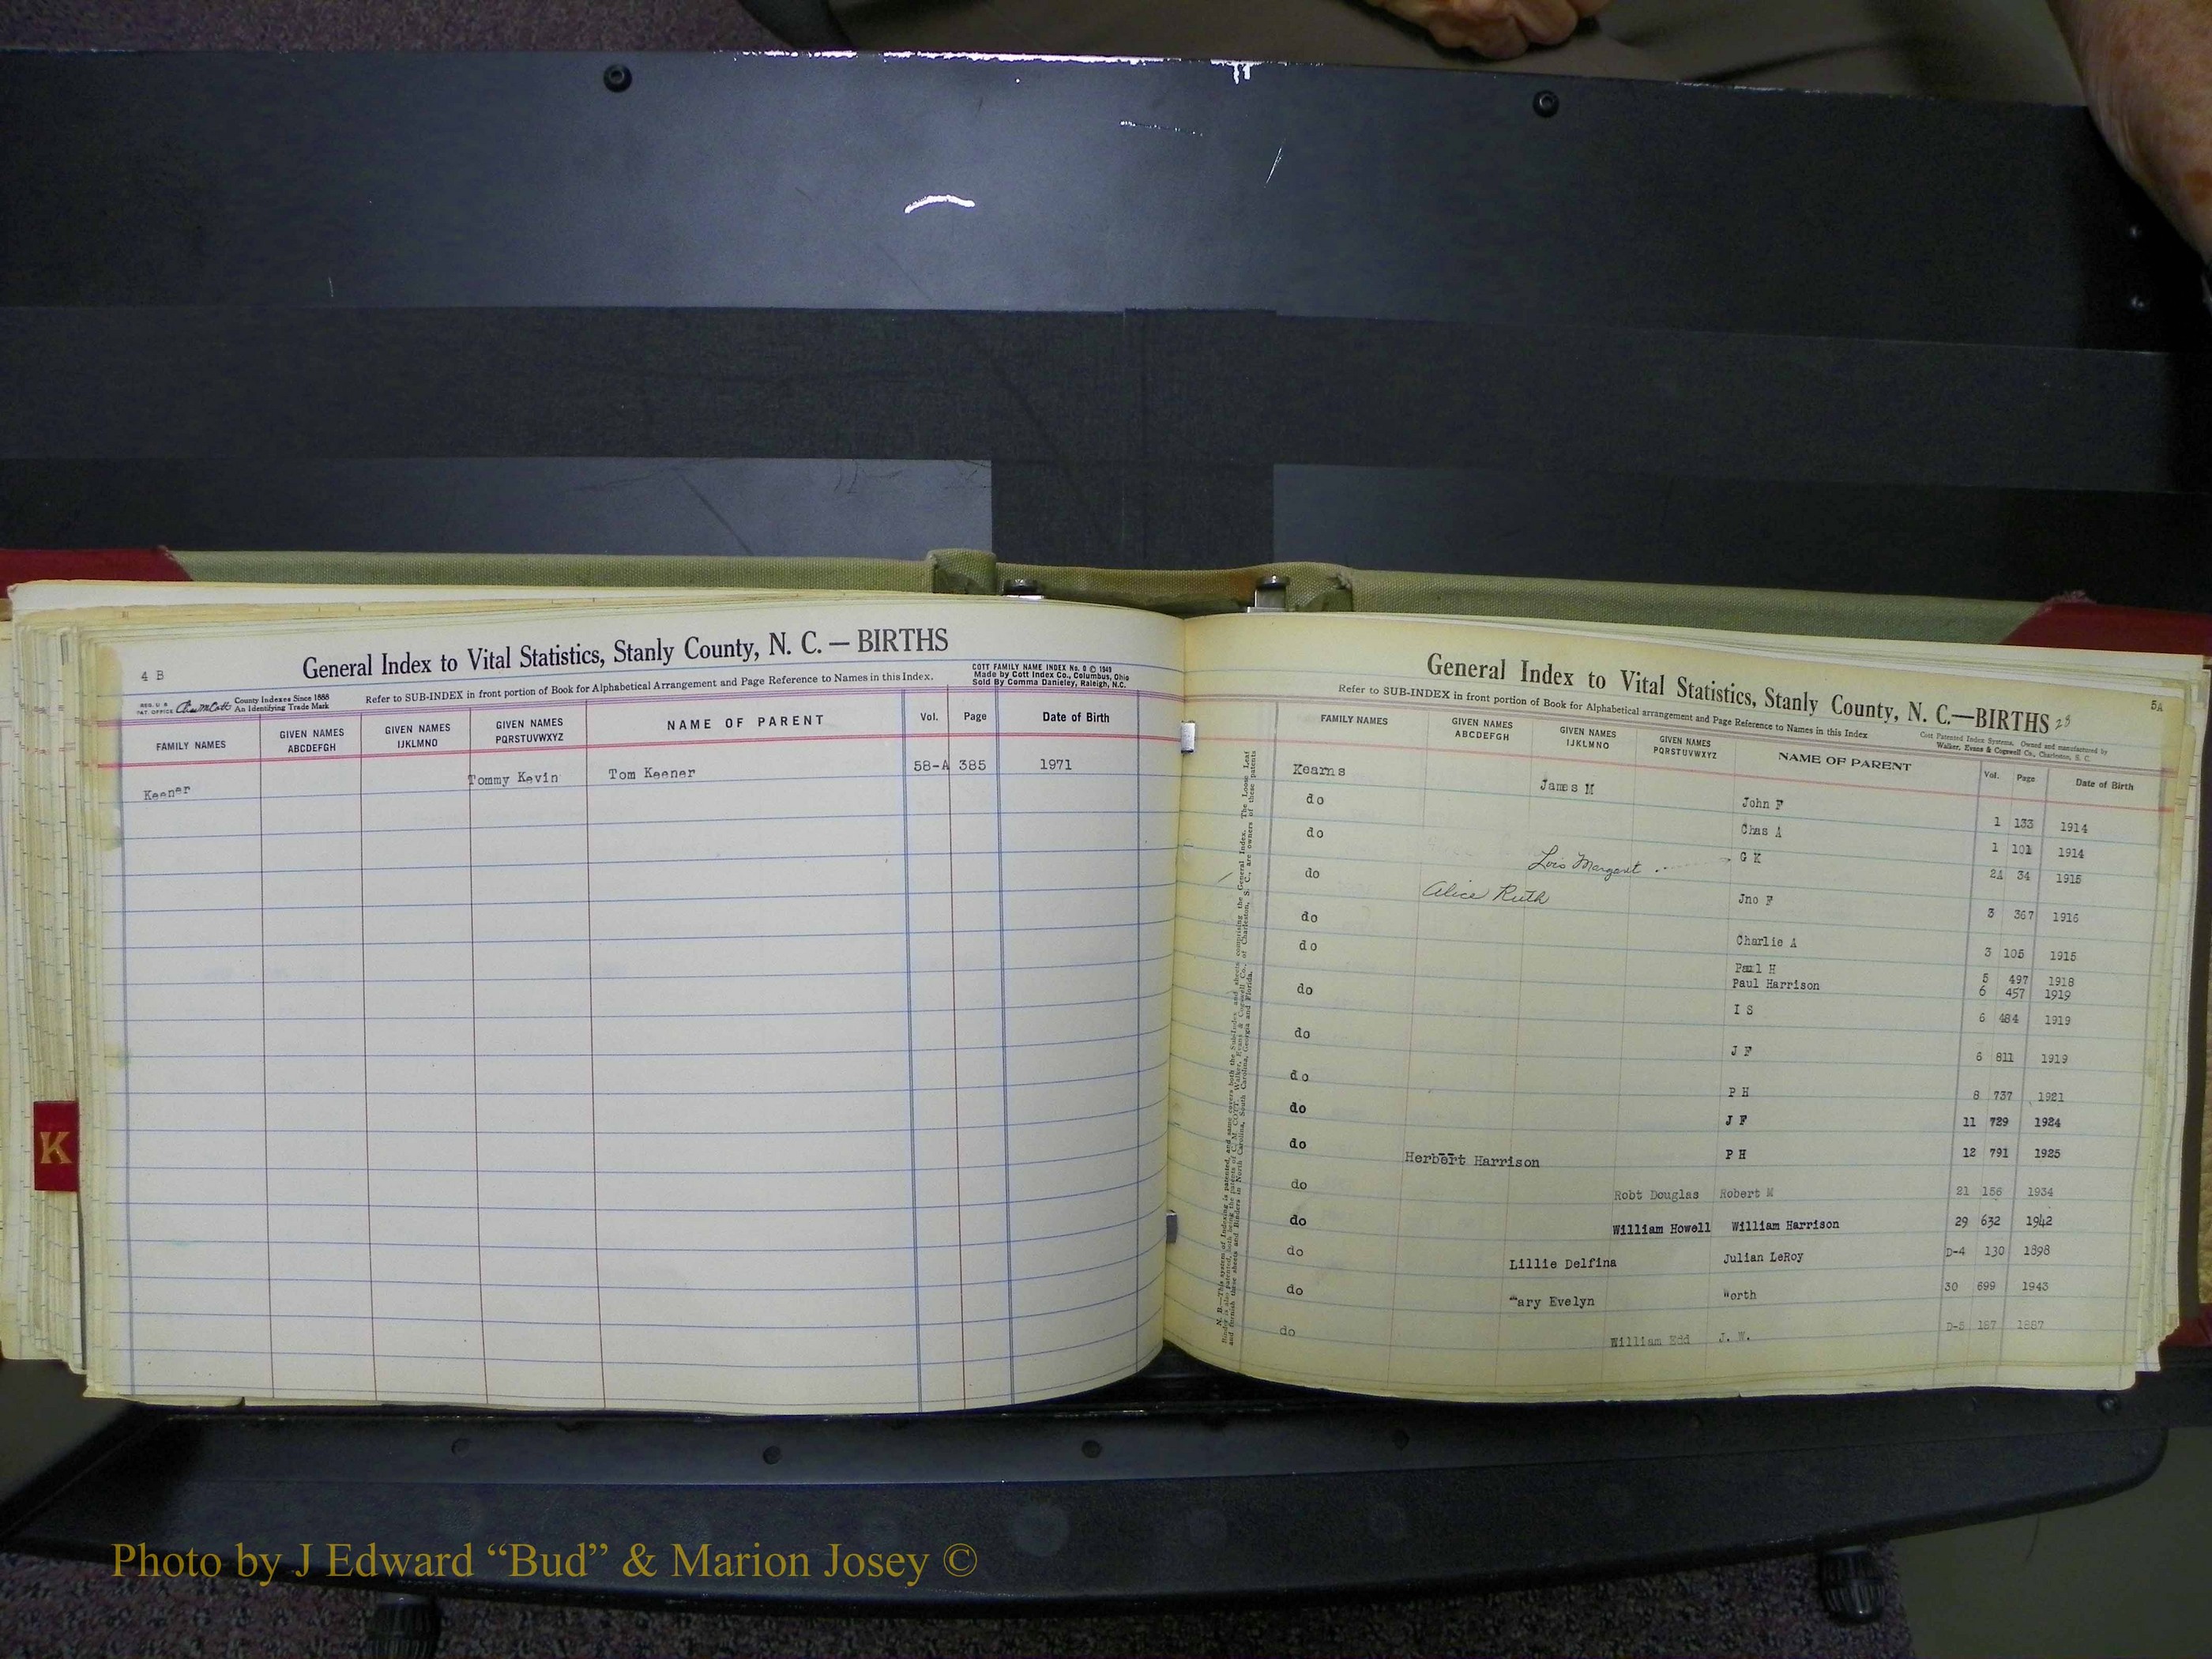 4 B
General Index to Vital Statistics, Stanly County, N. C. — BIRTHS
REG. U. S. PAT. OFFICE County Indexes Since 1888 An Identifying Trade Mark
Refer to SUB-INDEX in front portion of Book for Alphabetical Arrangement and Page Reference to Names in this Index.
COTT FAMILY NAME INDEX No. 9 © 1949
Made by Cott Index Co., Columbus, Ohio
Sold By Comma Danieley, Raleigh, N.C.
FAMILY NAMES GIVEN NAMES ABCDEFGH GIVEN NAMES IJKLMNO GIVEN NAMES PQRSTUVWXYZ NAME OF PARENT Vol. Page Date of Birth
Keener Tommy Kevin Tom Keener 58-A 385 1971
K
5A
General Index to Vital Statistics, Stanly County, N. C.—BIRTHS 25
Refer to SUB-INDEX in front portion of Book for Alphabetical arrangement and Page Reference to Names in this Index
Cott Patented Index Systems. Owned and manufactured by
Walker, Evans & Cogswell Co., Charleston, S. C.
FAMILY NAMES GIVEN NAMES ABCDEFGH GIVEN NAMES IJKLMNO GIVEN NAMES PQRSTUVWXYZ NAME OF PARENT Vol. Page Date of Birth
Kearns James M John F 1 133 1914
do Chas A 1 101 1914
do Lois Margaret G K 2A 34 1915
do Alice Ruth Jno F 3 367 1916
do Charlie A 3 105 1915
do Paul H 5 497 1918
Paul Harrison 6 457 1919
do I S 6 484 1919
do J F 6 811 1919
do P H 8 737 1921
do J F 11 729 1924
do Herbert Harrison P H 12 791 1925
do Robt Douglas Robert M 21 156 1934
do William Howell William Harrison 29 632 1942
do Lillie Delfina Julian LeRoy D-4 130 1898
do Mary Evelyn Worth 30 699 1943
do William Edd J. W. D-5 187 1887
Photo by J Edward “Bud” & Marion Josey ©